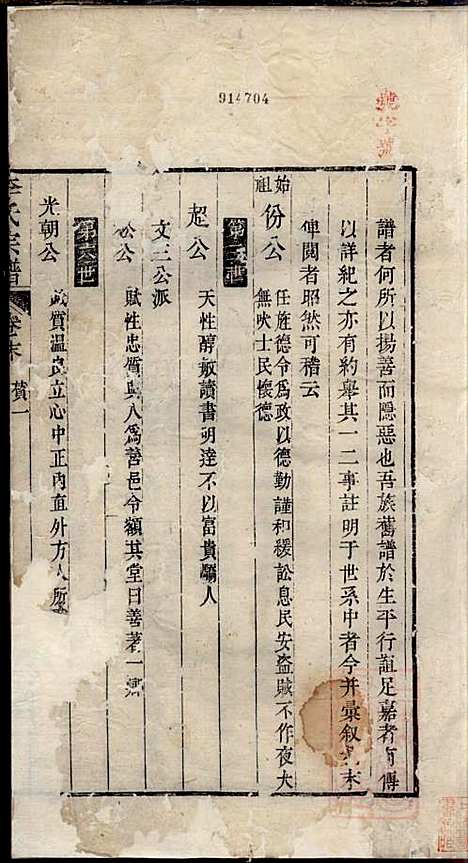 914704
譜者何所以揚善而隱惡也吾族舊譜於生平行誼足嘉者有傳
以詳紀之亦有約舉其一二事註明于世系中者今并彙叙末
俾閱者昭然可稽云
始祖 份公 任旌德令為政以德勤謹和緩訟息民安盜賊不作夜犬
無吠士民懷德
超公 天性醇敏讀書明達不以富貴驕人
文三公派
公 賦性忠質與人為善邑令額其堂曰善著一鄉
第六世
光朝公 質温良立心中正内直外方人所
氏宗譜 卷末 贊一